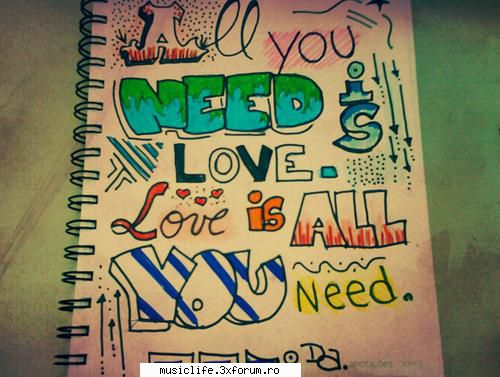 All you
NEED is
LOVE.
Love is ALL
YOU Need.
Da.
musiclife.3xforum.ro